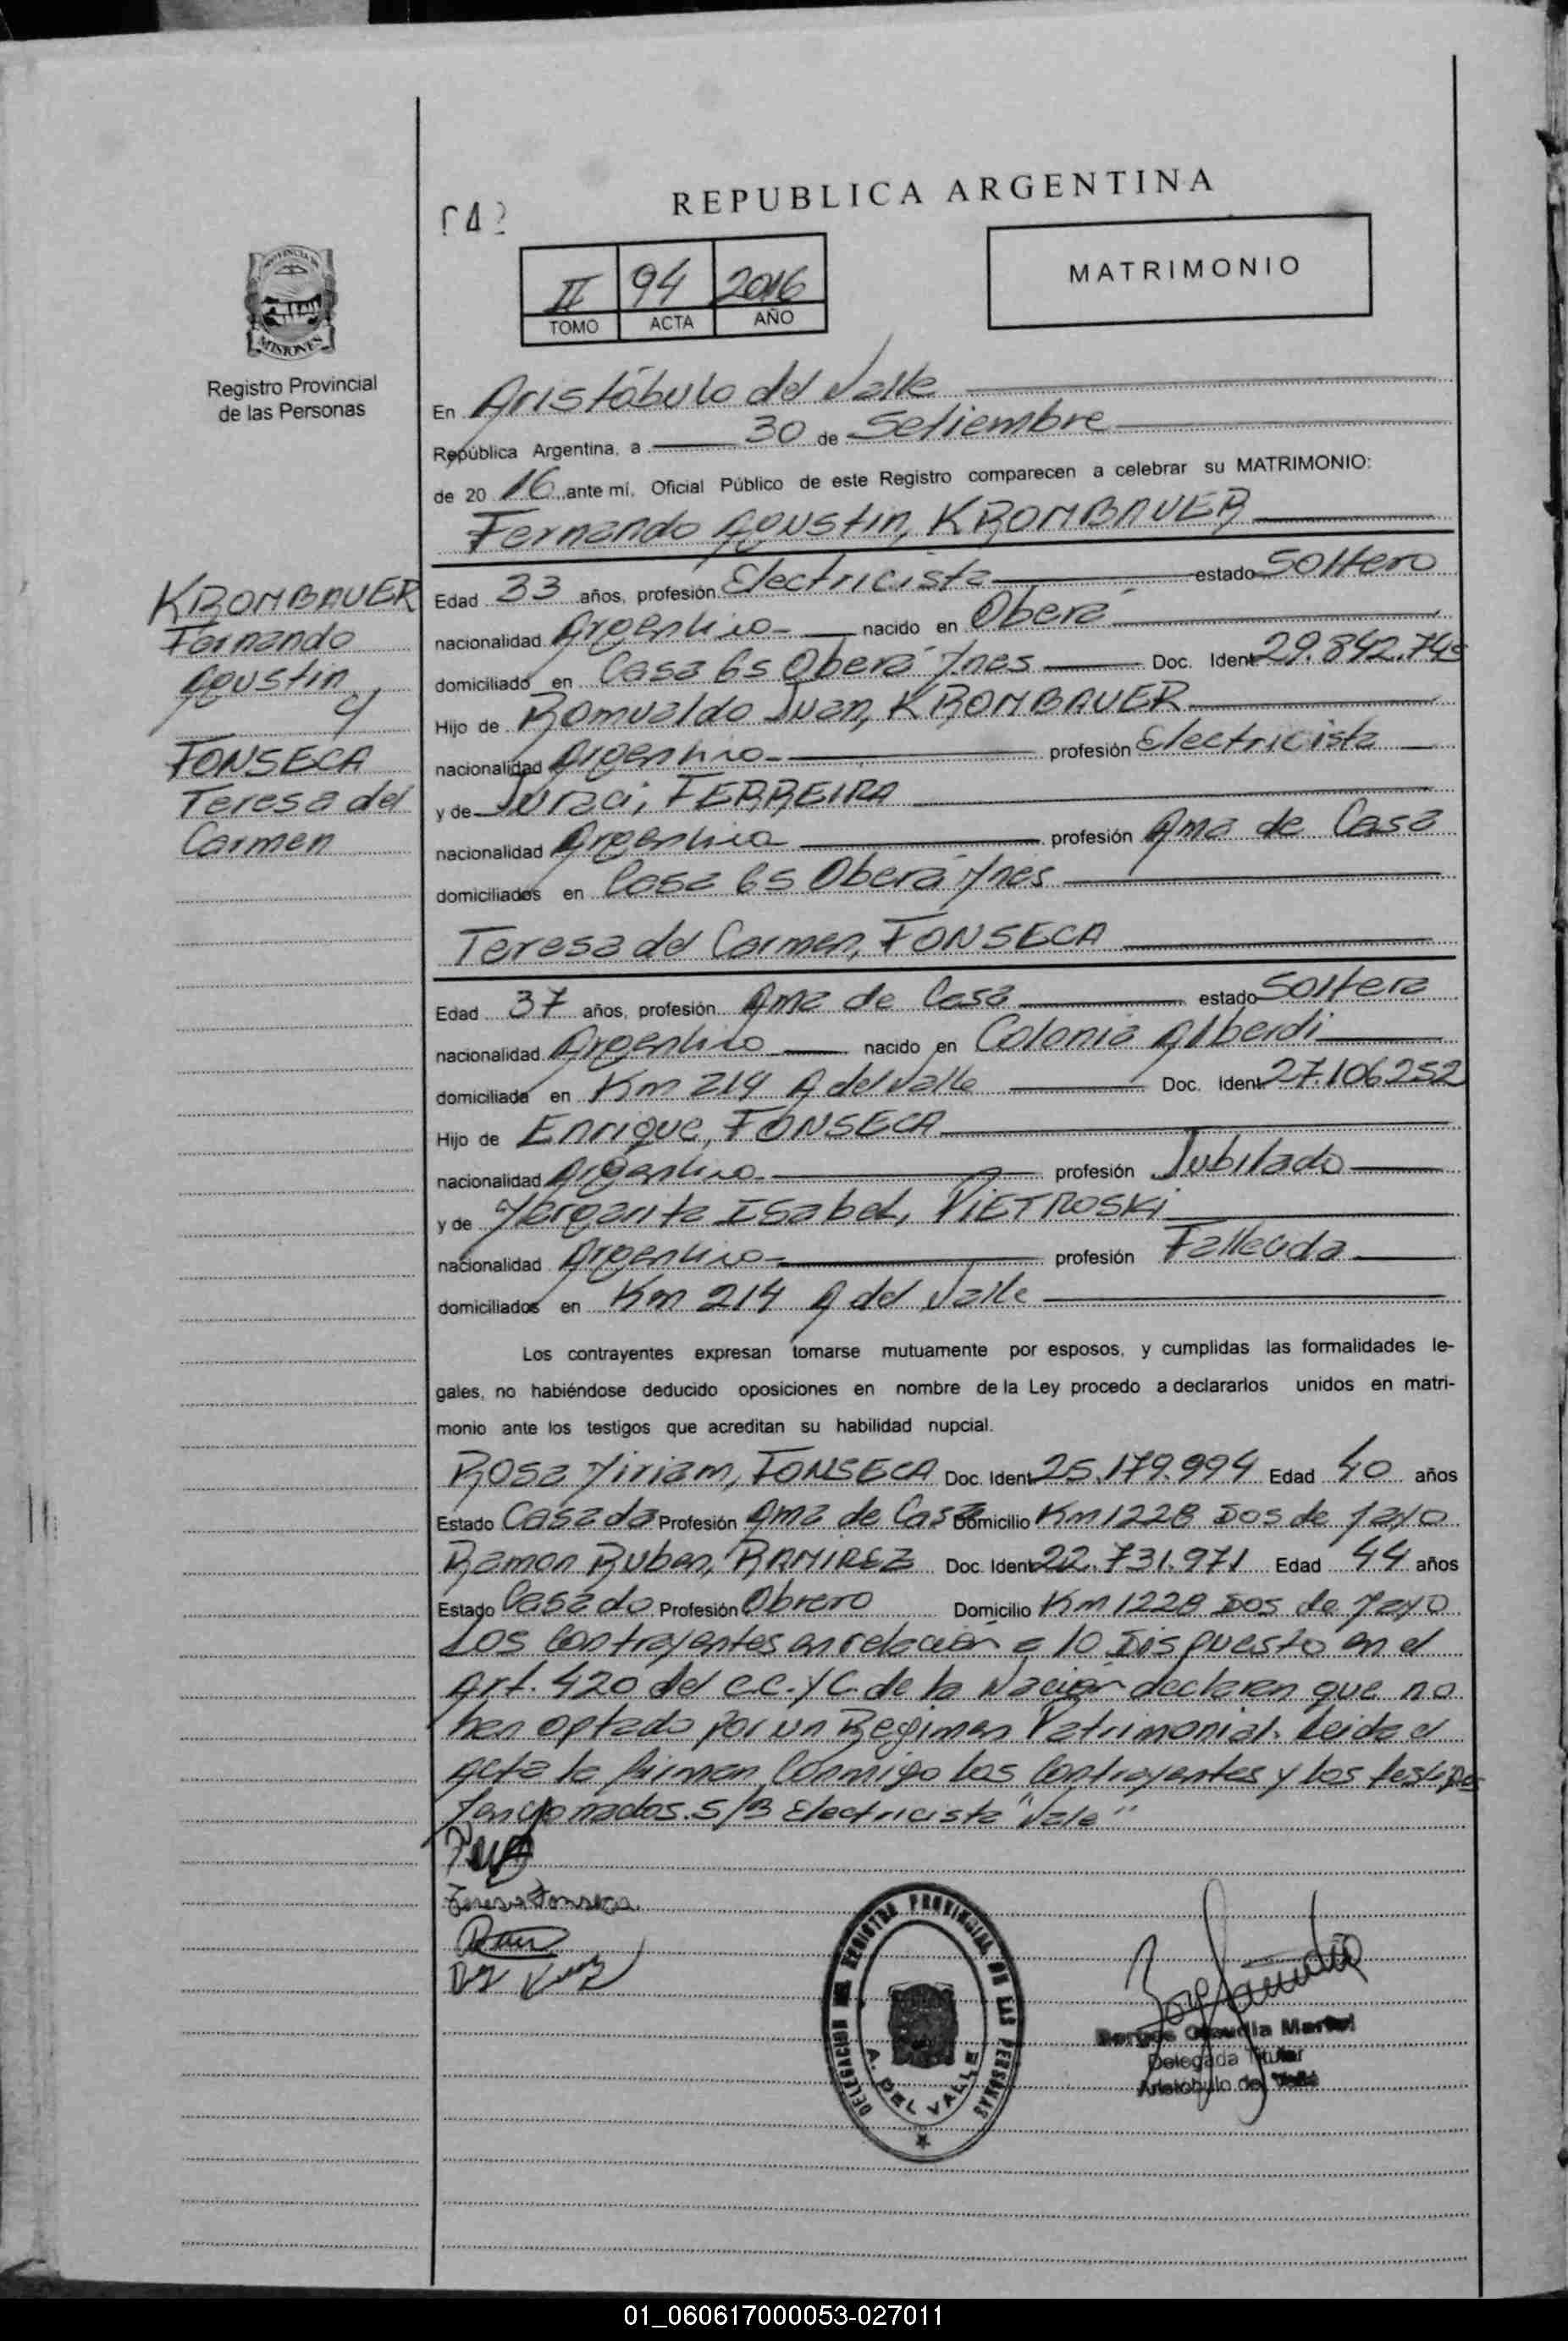 REPUBLICA ARGENTINA
II 94 2016
TOMO ACTA AÑO
MATRIMONIO
PROVINCIA DE
MISIONES
Registro Provincial
de las Personas
En Aristóbulo del Valle
República Argentina, a 30 de Setiembre
de 20 16 ante mí, Oficial Público de este Registro comparecen a celebrar su MATRIMONIO:
Fernando Agustin, KROMBAUER
KROMBAUER
Fernando
Agustin
y
FONSECA
Teresa del
Carmen
Edad 33 años, profesión Electricista estado Soltero
nacionalidad Argentino nacido en Oberá
domiciliado en Casa 65 Oberá Mnes Doc. Ident 29.842.745
Hijo de Romualdo Juan, KROMBAUER
nacionalidad Argentino profesión Electricista
y de Juraci, FERREIRA
nacionalidad Argentina profesión Ama de Casa
domiciliados en Casa 65 Oberá Mnes
Teresa del Carmen, FONSECA
Edad 37 años, profesión Ama de Casa estado Soltera
nacionalidad Argentino nacido en Colonia Alberdi
domiciliada en Km 214 A del Valle Doc. Ident 27.106.252
Hijo de Enrique, FONSECA
nacionalidad Argentino profesión Jubilado
y de Margarita Isabel, PIETROSKI
nacionalidad Argentino profesión Fallecida
domiciliados en Km 214 A del Valle
Los contrayentes expresan tomarse mutuamente por esposos, y cumplidas las formalidades le-
gales, no habiéndose deducido oposiciones en nombre de la Ley procedo a declararlos unidos en matri-
monio ante los testigos que acreditan su habilidad nupcial.
Rosa Miriam, FONSECA Doc. Ident 25.179.994 Edad 40 años
Estado Casada Profesión Ama de Casa Domicilio Km 1228 Dos de Mayo
Ramon Ruben, RAMIREZ Doc. Ident 22.731.971 Edad 44 años
Estado Casado Profesión Obrero Domicilio Km 1228 Dos de Mayo
Los Contrayentes en relación a lo Dispuesto en el
Art. 420 del C.C. y C. de la Nación declaran que no
han optado por un Regimen Patrimonial. Leida el
Acta la firman Conmigo los Contrayentes y los testigos
Mencionados. S/B Electricista "Vale"
Teresa Fonseca
DELEGACION DEL REGISTRO PROVINCIAL DE LAS PERSONAS
A. DEL VALLE
Borges Claudia Marisel
Delegada Titular
Aristobulo del Valle
01_060617000053-027011